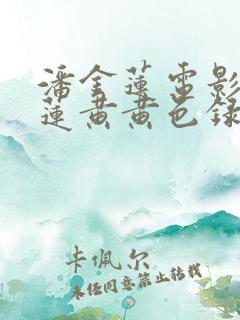 潘金莲电影
莲黄黄色録
卡佩尔
未经同意禁止转载